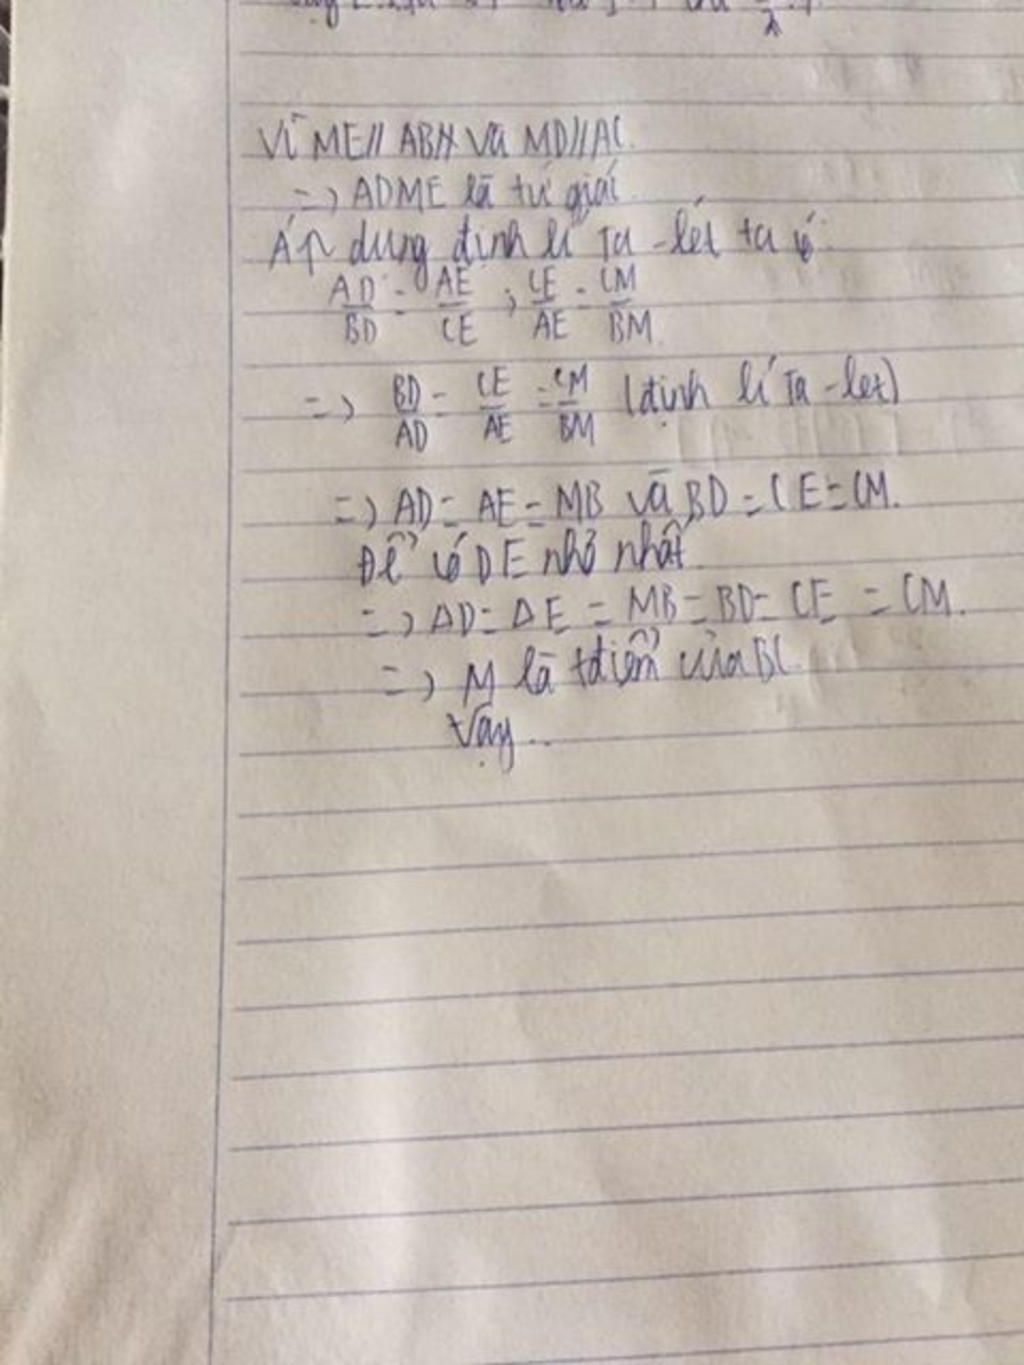 Vì ME // AB và MD // AC.
=) ADME là tứ giác
Áp dụng định lí Ta-lét ta có:
AD/BD = AE/CE ; CE/AE = CM/BM.
=) BD/AD = CE/AE = CM/BM (định lí Ta-let)
=) AD = AE = MB và BD = CE = CM.
Để có DE nhỏ nhất
=) AD = AE = MB = BD = CE = CM.
=) M là tđiểm của BC.
Vậy..